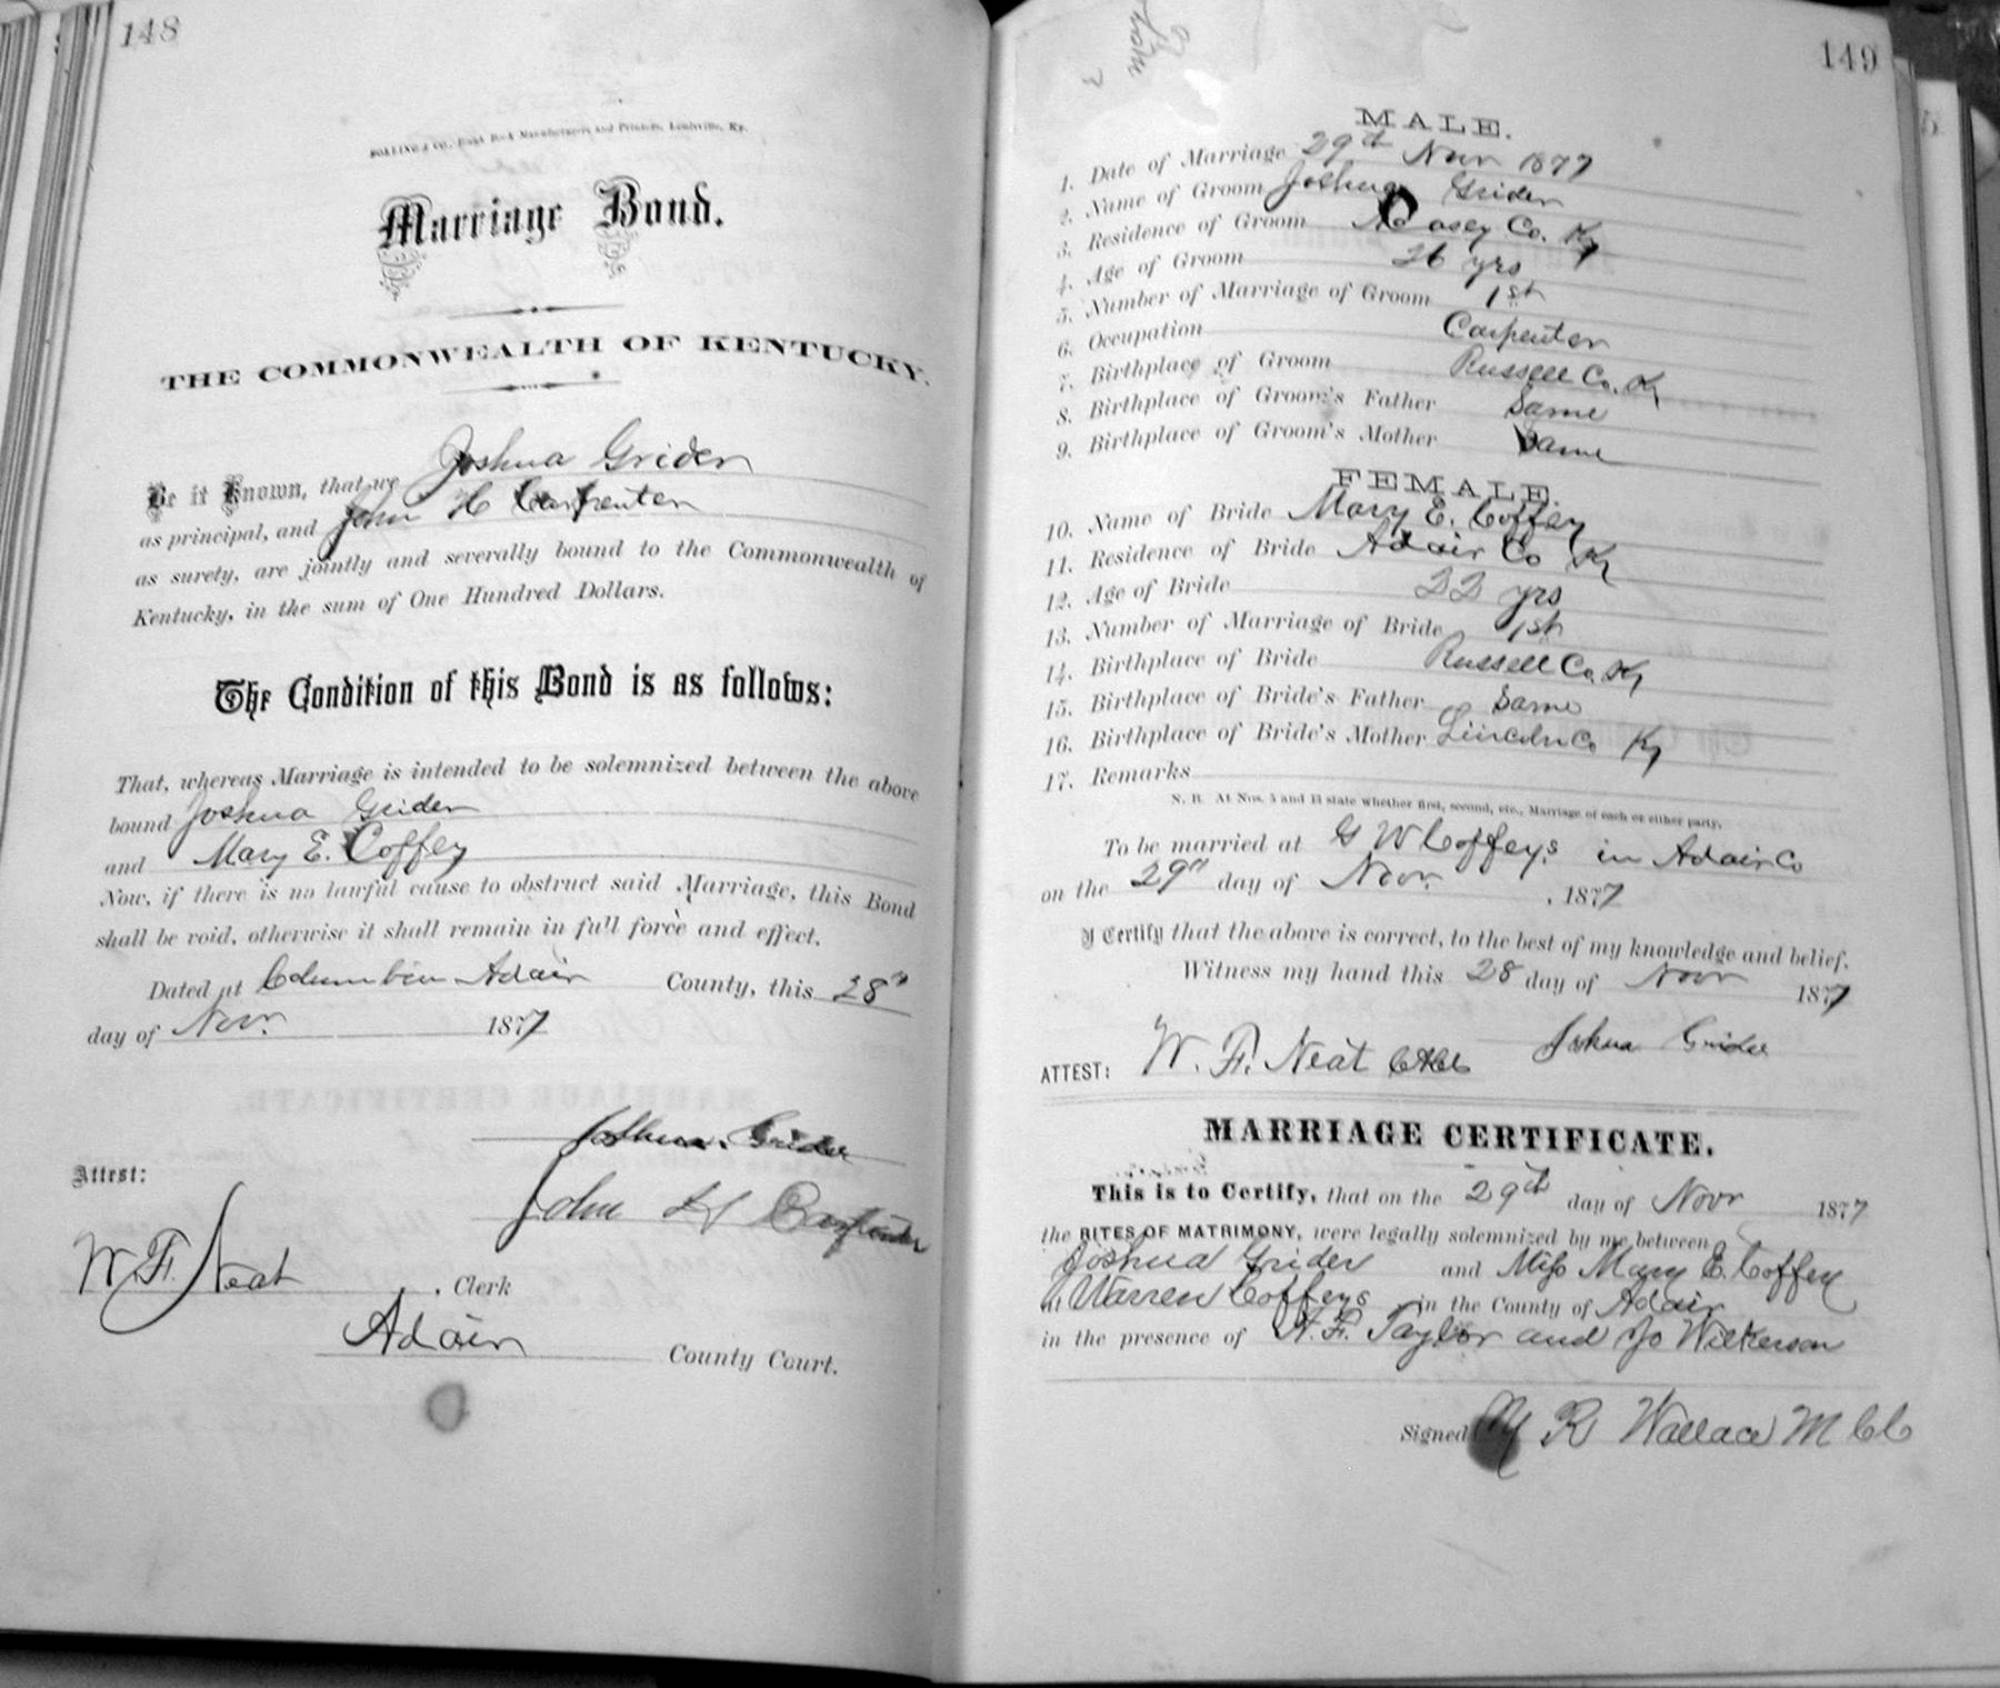 148
Marriage Bond.
THE COMMONWEALTH OF KENTUCKY.
Be it Known, that we Joshua Grider
as principal, and John H Carpenter
as surety, are jointly and severally bound to the Commonwealth of
Kentucky, in the sum of One Hundred Dollars.
The Condition of this Bond is as follows:
That, whereas Marriage is intended to be solemnized between the above
bound Joshua Grider
and Mary E. Coffey
Now, if there is no lawful cause to obstruct said Marriage, this Bond
shall be void, otherwise it shall remain in full force and effect.
Dated at Columbia Adair County, this 28th
day of Nov. 1877
Joshua Grider
Attest:
John H Carpenter
W. F. Neat, Clerk
Adair County Court.
149
MALE.
1. Date of Marriage 29th Nov 1877
2. Name of Groom Joshua Grider
3. Residence of Groom Casey Co. Ky
4. Age of Groom 26 yrs
5. Number of Marriage of Groom 1st
6. Occupation Carpenter
7. Birthplace of Groom Russell Co. Ky
8. Birthplace of Groom's Father Same
9. Birthplace of Groom's Mother Same
FEMALE.
10. Name of Bride Mary E. Coffey
11. Residence of Bride Adair Co Ky
12. Age of Bride 22 yrs
13. Number of Marriage of Bride 1st
14. Birthplace of Bride Russell Co. Ky
15. Birthplace of Bride's Father Same
16. Birthplace of Bride's Mother Lincoln Co Ky
17. Remarks
N. B. At Nos. 5 and 13 state whether first, second, etc., Marriage of each or either party.
To be married at G W Coffey's in Adair Co
on the 29th day of Nov. , 1877
I Certify that the above is correct, to the best of my knowledge and belief.
Witness my hand this 28 day of Nov 1877
Joshua Grider
ATTEST: W. F. Neat
MARRIAGE CERTIFICATE.
This is to Certify, that on the 29th day of Novr 1877
the RITES OF MATRIMONY, were legally solemnized by me between
Joshua Grider and Miss Mary E. Coffey
at Warren Coffeys in the County of Adair
in the presence of Taylor and Jo Wilkerson
Signed R Wallace